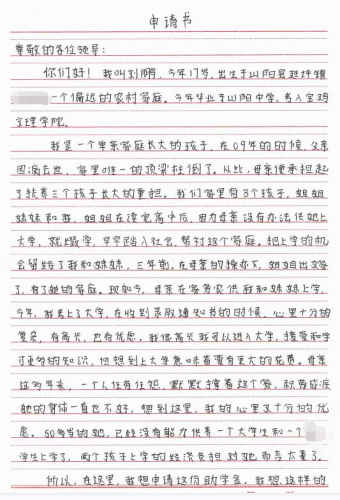 申请书
尊敬的各位领导：
你们好！我叫刘鹏，今年17岁，出生于山阳县延坪镇
一个偏远的农村家庭。今年毕业于山阳中学，考入宝鸡
文理学院。
我是一个单亲家庭长大的孩子，在09年的时候，父亲
因病去世，家里唯一的顶梁柱倒了。从此，母亲便承担起
了扶养三个孩子长大的重担。我们家里有3个孩子，姐姐
妹妹和我，姐姐在读完高中后，因为母亲没有办法供她上
大学，就辍学，早早踏入社会，帮衬这个家庭。把上学的机
会留给了我和妹妹，三年前，在母亲的操办下，姐姐出嫁
了，有了她的家庭。现如今，母亲在务劳农供我和妹妹上学，
今年，我考上了大学，在收到录取通知书的时候，心里十分的
复杂，有高兴，也有忧愁，我很高兴我可以进入大学，接受和学
习更多的知识，但想到上大学意味着要有更大的花费。母亲
这多年来，一个人任劳任怨，默默撑着这个家，积劳成疾
她的身体一直也不好，想到这里，我的心里又十分的忧
虑。50多岁的她，已经没有能力供养一个大学生和一个
学生上学了，两个孩子上学的经济负担对她而言太重了。
所以，在这里，我想申请这份助学金，我想这样的